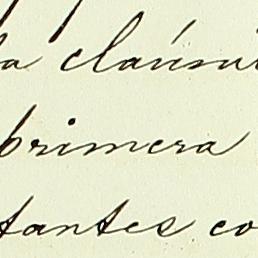 la claúsu
primera
tantes co